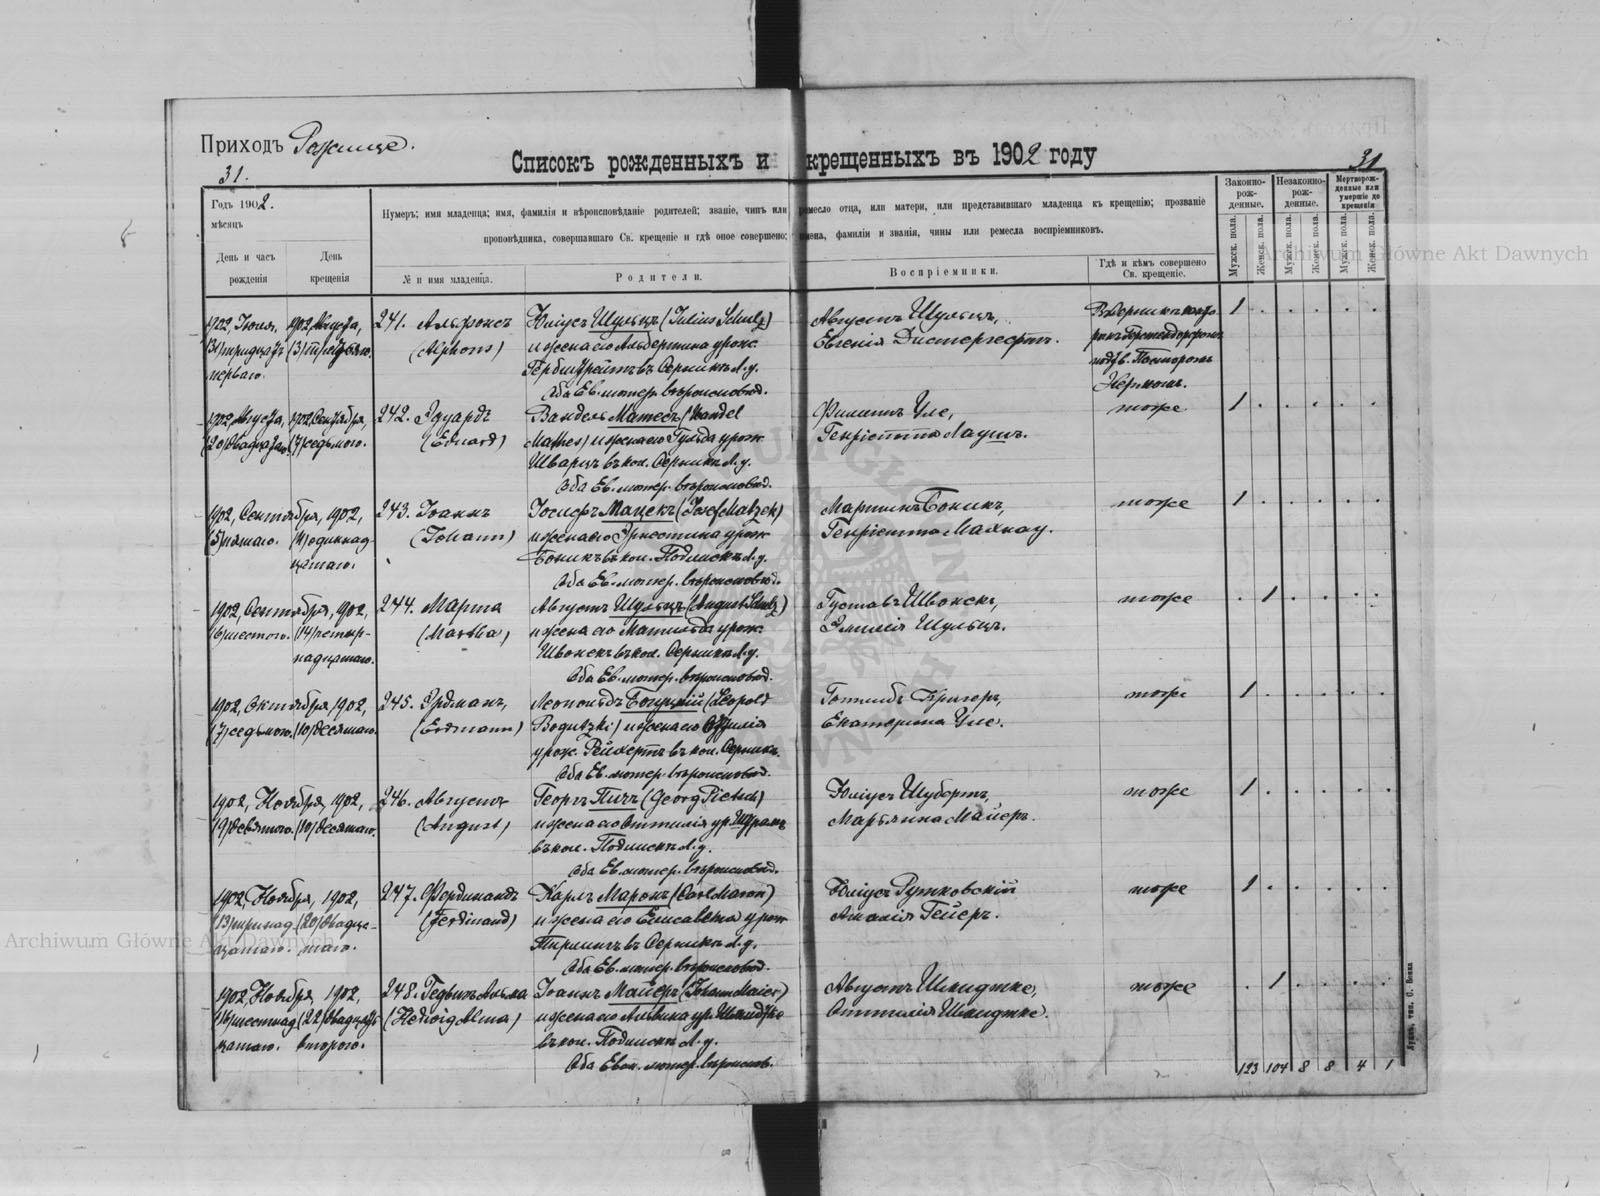 Приходъ Рожище.
Списокъ рожденныхъ и крещенныхъ въ 1902 году
31.
31
Годъ 1902.
мѣсяцъ
День и часъ рожденія
День крещенія
Нумеръ; имя младенца; имя, фамилія и вѣроисповѣданіе родителей; званіе, чинъ или ремесло отца, или матери, или представившаго младенца къ крещенію; прозваніе
проповѣдника, совершавшаго Св. крещеніе и гдѣ оное совершено; имена, фамиліи и званія, чины или ремесла воспріемниковъ.
№ и имя младенца.
Родители.
Воспріемники.
Гдѣ и кѣмъ совершено Св. крещеніе.
Законно-рож-денные.
Незаконно-рож-денные.
Мертворож-денные или умершіе до крещенія
Мужск. пола.
Женск. пола.
Мужск. пола.
Женск. пола.
Мужск. пола.
Женск. пола.
1902, Іюля, 1902, Августа, 241. Альфонсъ Юліусъ Шульцъ (Julius Schulz) Августъ Шульцъ, 1
(31) тридцать (3) третьяго. (Alphons) и жена его Альбертина урож. Евгенія
перваго. въ Серникъ Л. у.
Оба Ев. лютер. вѣроисповѣд. Пасторомъ
1902, Августа, 1902, Сентября, 242. Эдуардъ Вандель Матесъ (Wandel Филиппъ Уле, тоже 1
(20) двадцатаго. (7) седьмого. (Eduard) Mathes) и жена его Гульда урож. Генріетта Лаушъ.
Шварцъ въ кол. Серникъ Л. у.
Оба Ев. лютер. вѣроисповѣд.
1902, Сентября, 1902, 243. Іоаннъ Іосифъ Мацекъ (Josef Matzek) Мартинъ Боникъ, тоже 1
(5) пятаго. (11) одиннад- (Johann) и жена его Эрнестина урож. Генріетта Махнау.
цатаго. Боникъ въ кол. Подлискъ Л. у.
Оба Ев. лютер. вѣроисповѣд.
1902, Сентября, 1902, 244. Марта Августъ Шульцъ (August Schulz) Густавъ Швонскъ, тоже 1
(6) шестого. (14) четыр- (Martha) и жена его Матильда урож. Эмилія Шульцъ.
надцатаго. Швонскъ въ кол. Серникъ Л. у.
Оба Ев. лютер. вѣроисповѣд.
1902, Октября, 1902, 245. Эрдманъ, Леопольдъ Богуцкій (Leopold Готлибъ Кригеръ, тоже 1
(7) седьмого. (10) десятаго. (Erdmann) Bogutzki) и жена его Оттилія Екатерина Уле.
урож. Рейхертъ въ кол. Серникъ.
Оба Ев. лютер. вѣроисповѣд.
1902, Ноября, 1902, 246. Августъ Георгъ Пичъ (Georg Pietsch) Юліусъ Шубертъ, тоже 1
(9) девятого. (10) десятаго. (August) и жена его Оттилія ур. Шрамъ Марьянна Майеръ.
въ кол. Подлискъ Л. у.
Оба Ев. лютер. вѣроисповѣд.
1902, Ноября, 1902, 247. Фердинандъ Карлъ Маронъ (Carl Maron) Юліусъ Рутковскій тоже 1
(13) тринад- (20) двадца- (Ferdinand) и жена его Елисавета урож. Амалія Гейеръ.
цатаго. таго. въ Серникъ Л. у.
Оба Ев. лютер. вѣроисповѣд.
1902, Ноября, 1902, 248. Гедвигъ Альма Іоаннъ Майеръ (Johann Maier) Августъ Шмидтке, тоже 1
(16) шестнад- (22) двадцать (Hedwig Alma) и жена его Альвина ур. Шмидтке Оттилія Шмидтке.
цатаго. второго. въ кол. Подлискъ Л. у.
Оба Еван. лютер. вѣроиспов.
123 104 8 8 4 1
Archiwum Główne Akt Dawnych
Archiwum Główne Akt Dawnych